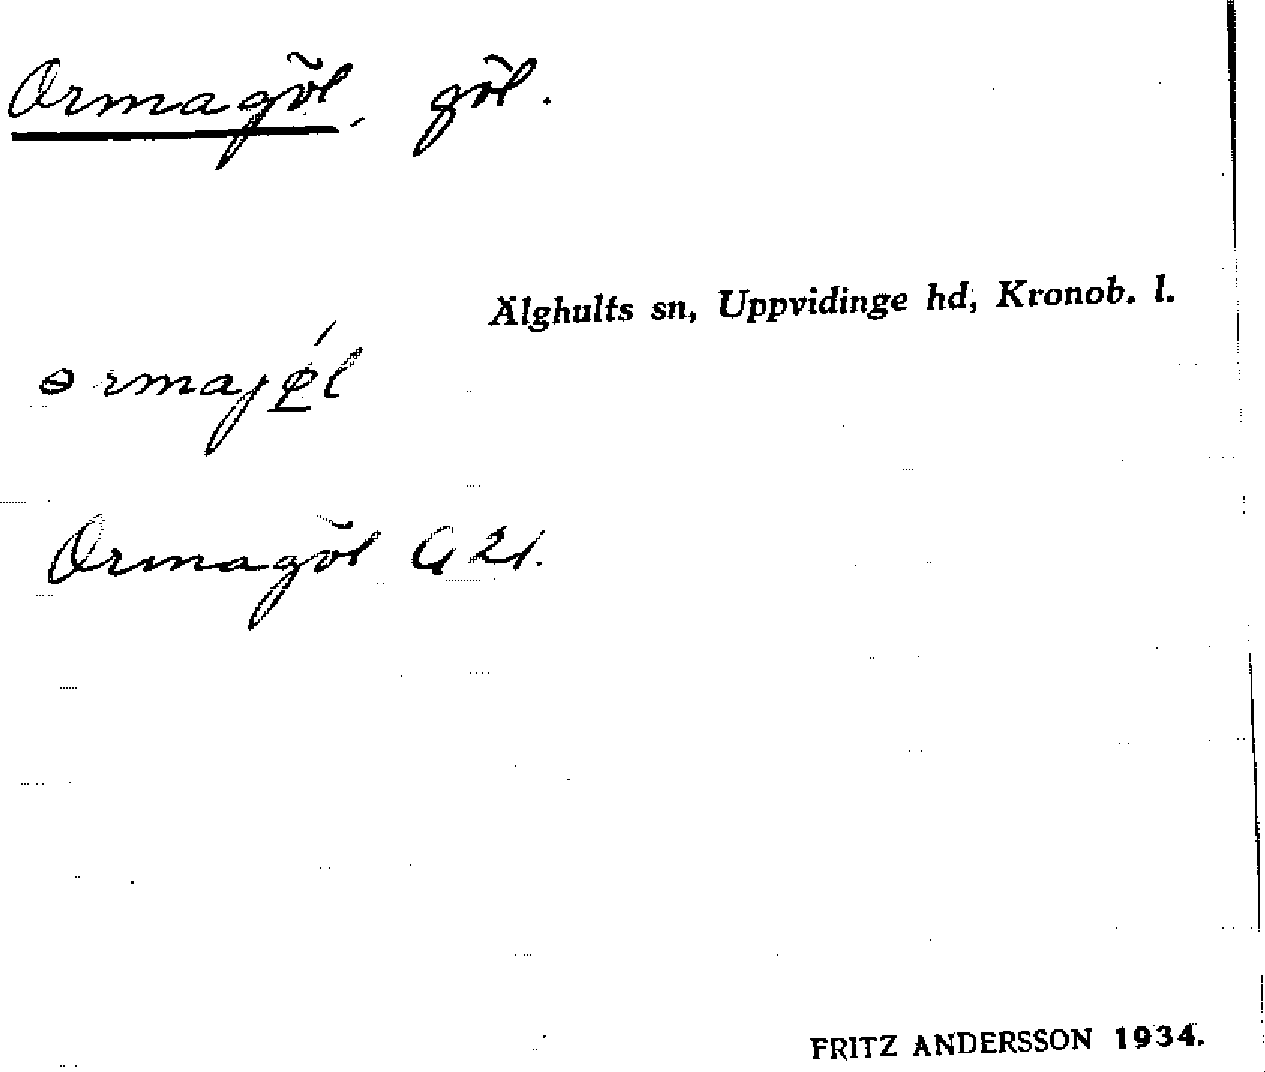 Ormagöl, göl.
Älghults sn, Uppvidinge hd, Kronob. l.
ɵrmajǿ̲l
Ormagöl G 21.
FRITZ ANDERSSON 1934.